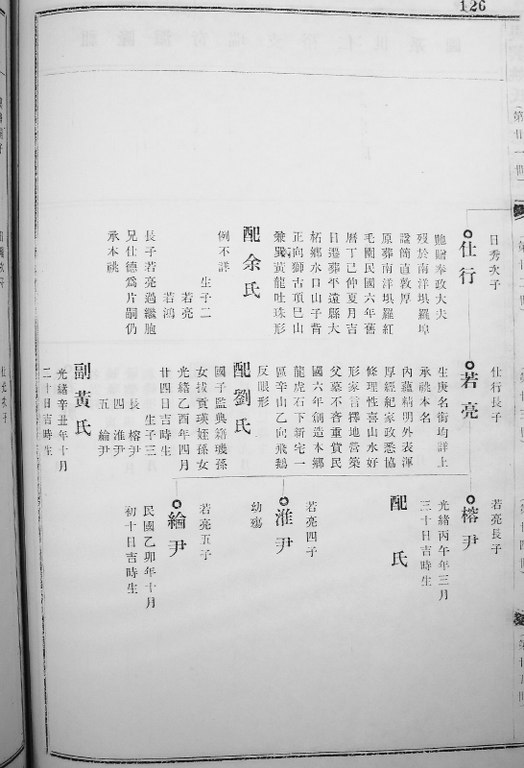 126
日秀次子
仕行
馳贈奉政大夫
歿於南洋埧羅埠
諡簡直敦厚
原葬南洋埧羅紅
毛關民國六年舊
曆丁巳仲夏月吉
日遷葬平遠縣大
柘鄉水口山子背
正向獅古項巳山
兼巽黃龍吐珠形
配余氏
例不詳
生子二
若亮
若鴻
長子若亮過繼胞
兄仕德爲片嗣仍
承本祧
仕行長子
若亮
生庚名銜均詳上
承祧本名
內蘊精明外表渾
厚經紀家政悉協
修理性喜山水好
形家言擇地營築
父墓不吝重貲民
國六年創造本鄉
龍虎石下新宅一
區辛山乙向飛鵝
反眼形
配劉氏
國子監典籍璣孫
女拔貢瑛姪孫女
光緒乙酉年四月
廿四日吉時生
生子三
長 榕尹
四 淮尹
五 綸尹
副黃氏
光緒辛丑年十月
二十日吉時生
若亮長子
榕尹
光緒丙午年三月
三十日吉時生
配 氏
若亮四子
淮尹
幼殤
若亮五子
綸尹
民國乙卯年十月
初十日吉時生